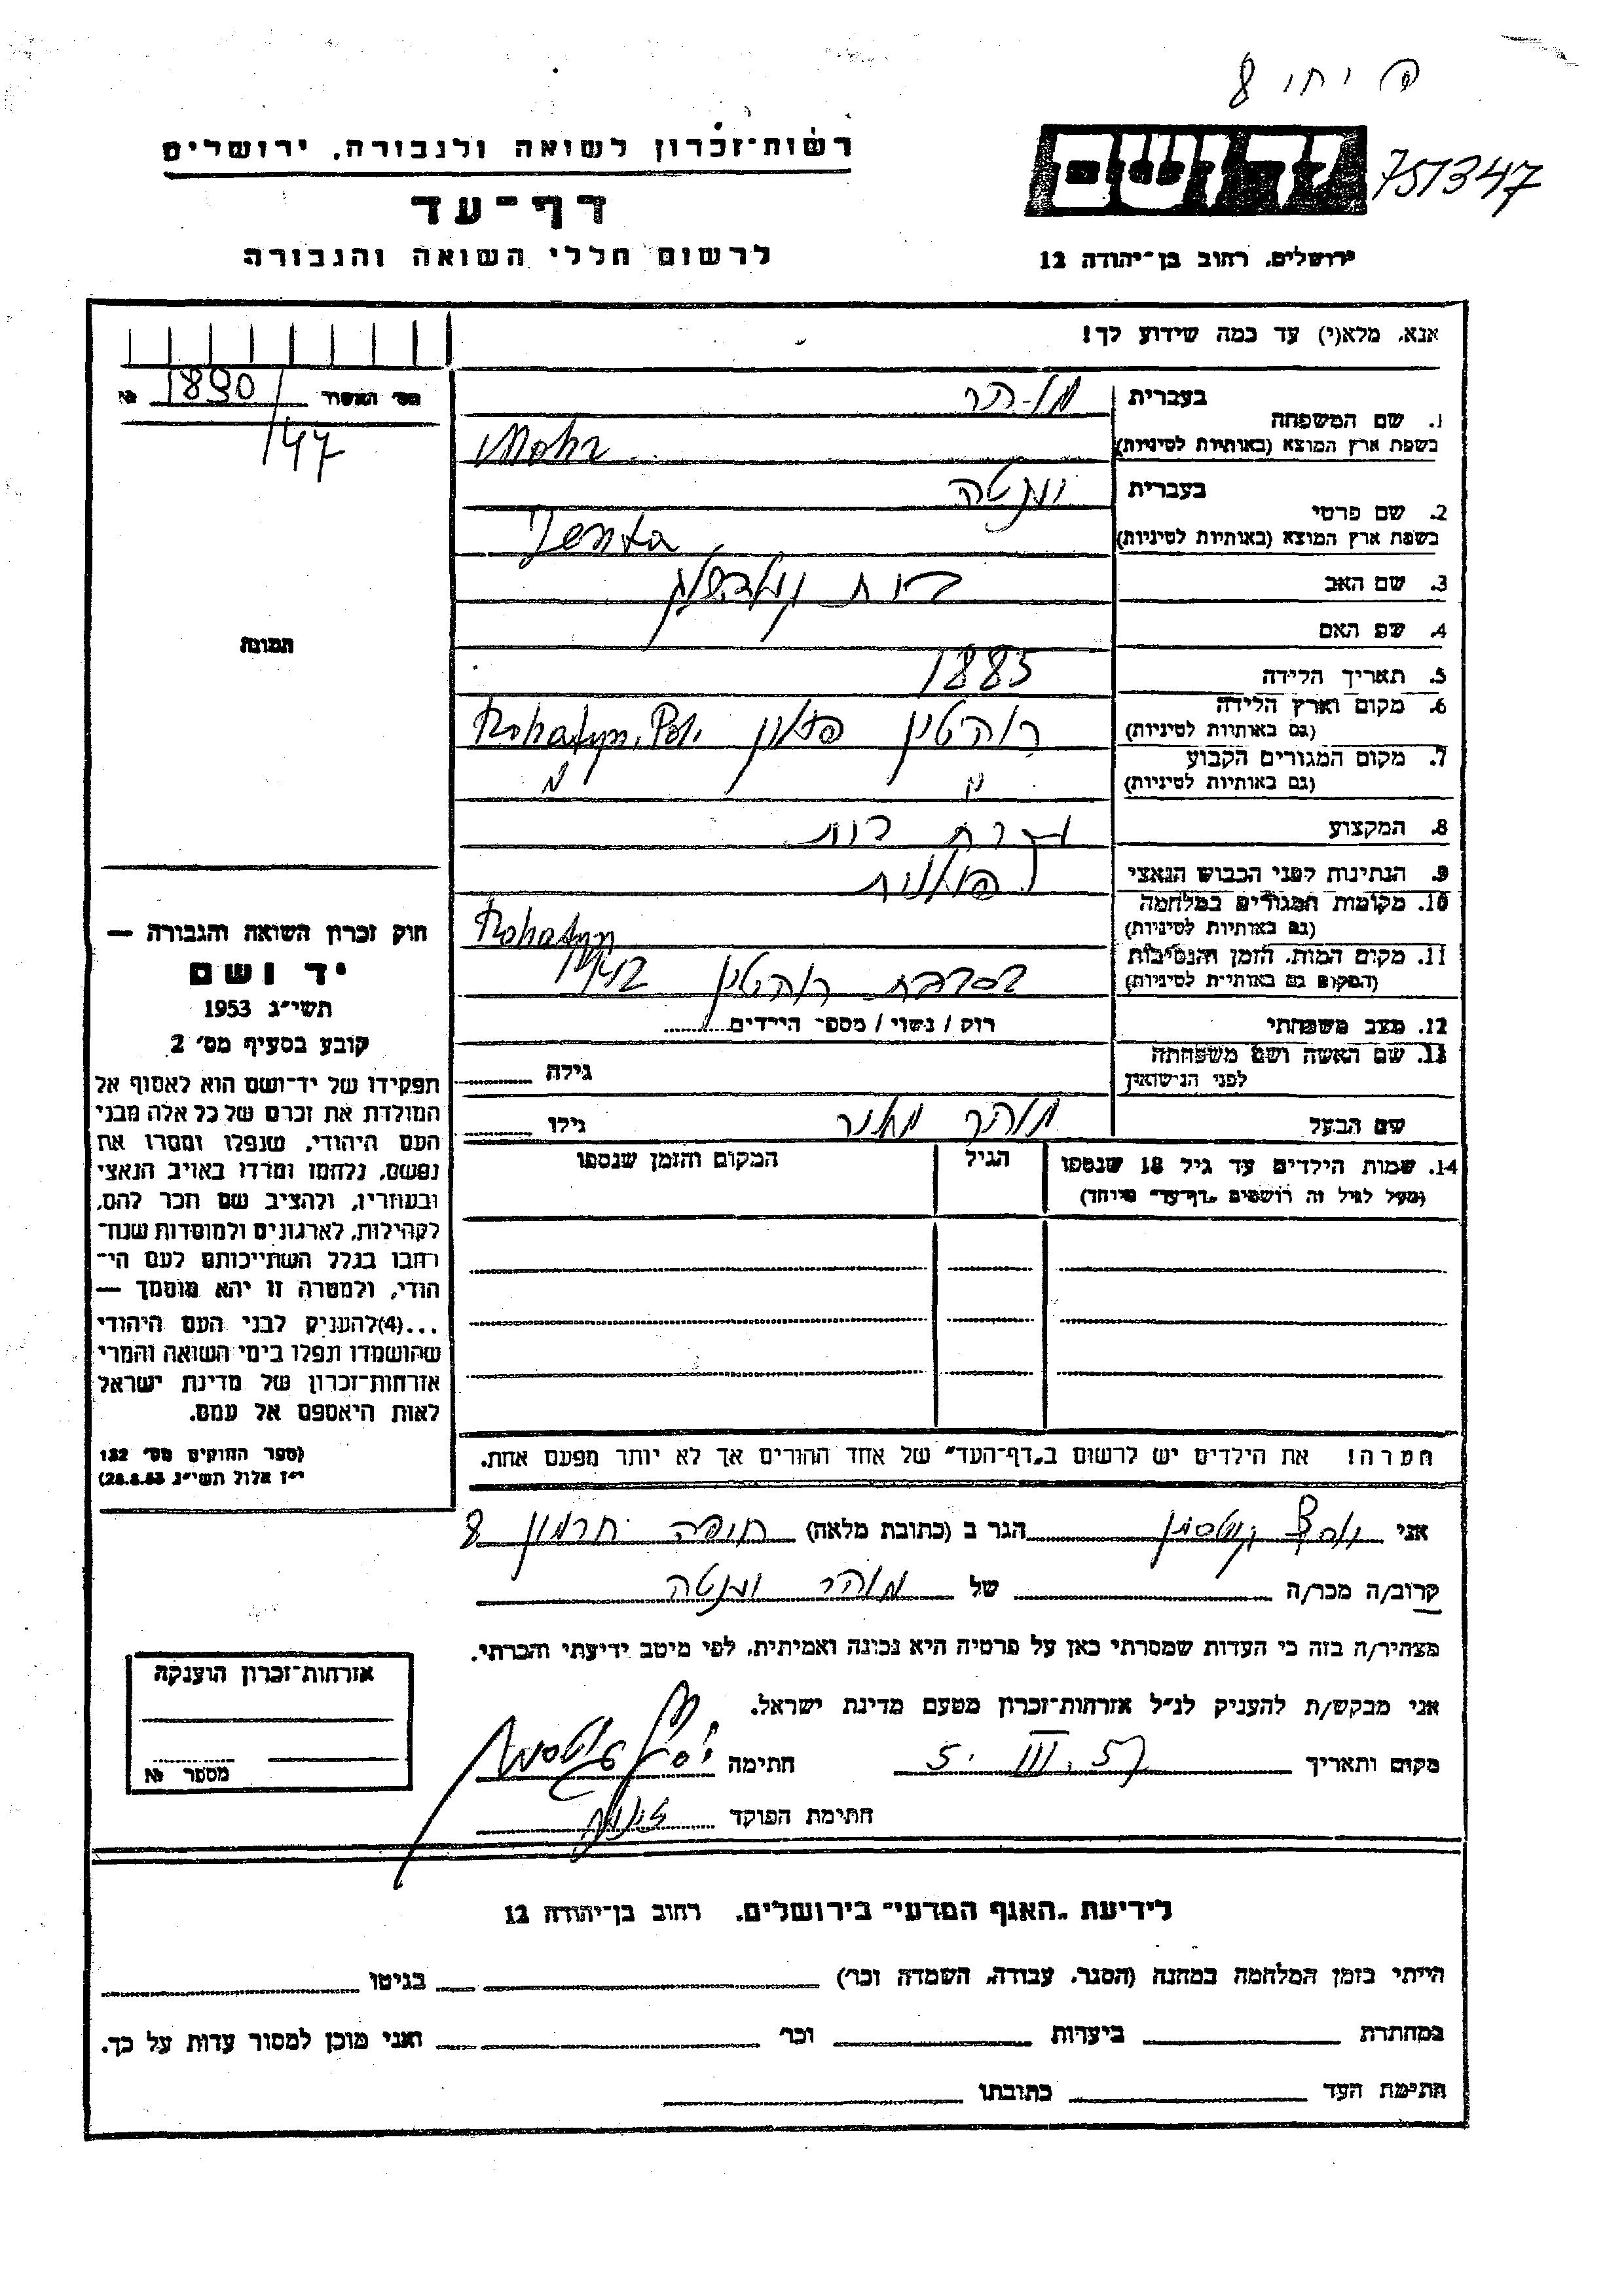 751347
רשות-זכרון לשואה ולגבורה, ירושלים
דף-עד
לרשום חללי השואה והגבורה
ירושלים, רחוב בן-יהודה 12
אנא, מלא(י) עד כמה שידוע לך!
מס׳ האשור 1890 №
147
1. שם המשפחה
בעברית מוהר
בשפת ארץ המוצא (באותיות לטיניות) Mohr
2. שם פרטי
בעברית ינטה
בשפת ארץ המוצא (באותיות לטיניות) Jenta
3. שם האב בית
4. שם האם
5. תאריך הלידה 1885
6. מקום וארץ הלידה
(גם באותיות לטיניות) רוהטין פולין Rohatyn, Pol.
7. מקום המגורים הקבוע
(גם באותיות לטיניות)
8. המקצוע עקרת בית
9. הנתינות לפני הכבוש הנאצי פולנית
10. מקומות המגורים במלחמה
(גם באותיות לטיניות) Rohatyn
11. מקום המות, הזמן והנסיבות
(המקום גם באותיות לטיניות) רוהטין
12. מצב משפחתי רוק / נשוי / מספר הילדים
13. שם האשה ושם משפחתה
לפני הנישואין גילה
שם הבעל מוהר גילו
14. שמות הילדים עד גיל 18 שנספו
(מעל לגיל זה רושמים „דף-עד״ מיוחד)
הגיל
המקום והזמן שנספו
הערה! את הילדים יש לרשום ב„דף-העד״ של אחד ההורים אך לא יותר מפעם אחת.
תמונה
חוק זכרון השואה והגבורה —
יד ושם
תשי״ג 1953
קובע בסעיף מס׳ 2
תפקידו של יד-ושם הוא לאסוף אל
המולדת את זכרם של כל אלה מבני
העם היהודי, שנפלו ומסרו את
נפשם, נלחמו ומרדו באויב הנאצי
ובעוזריו, ולהציב שם וזכר להם,
לקהילות, לארגונים ולמוסדות שנח-
רבו בגלל השתייכותם לעם הי-
הודי, ולמטרה זו יהא מוסמך —
...(4) להעניק לבני העם היהודי
שהושמדו ונפלו בימי השואה והמרי
אזרחות-זכרון של מדינת ישראל
לאות היאספם אל עמם.
(ספר החוקים מס׳ 132
י״ז אלול תשי״ג 28.8.53)
אני הגר ב (כתובת מלאה) חיפה חרמון 8
קרוב/ה מכר/ה של מוהר ינטה
מצהיר/ה בזה כי העדות שמסרתי כאן על פרטיה היא נכונה ואמיתית, לפי מיטב ידיעתי והכרתי.
אני מבקש/ת להעניק לנ״ל אזרחות-זכרון מטעם מדינת ישראל.
מקום ותאריך 5. III. 57 חתימה
חתימת הפוקד
אזרחות-זכרון הוענקה
מספר №
לידיעת „האגף המדעי״ בירושלים, רחוב בן-יהודה 12
הייתי בזמן המלחמה במחנה (הסגר, עבודה, השמדה וכו׳) בגיטו
במחתרת ביערות וכו׳ ואני מוכן למסור עדות על כך.
חתימת העד כתובתו